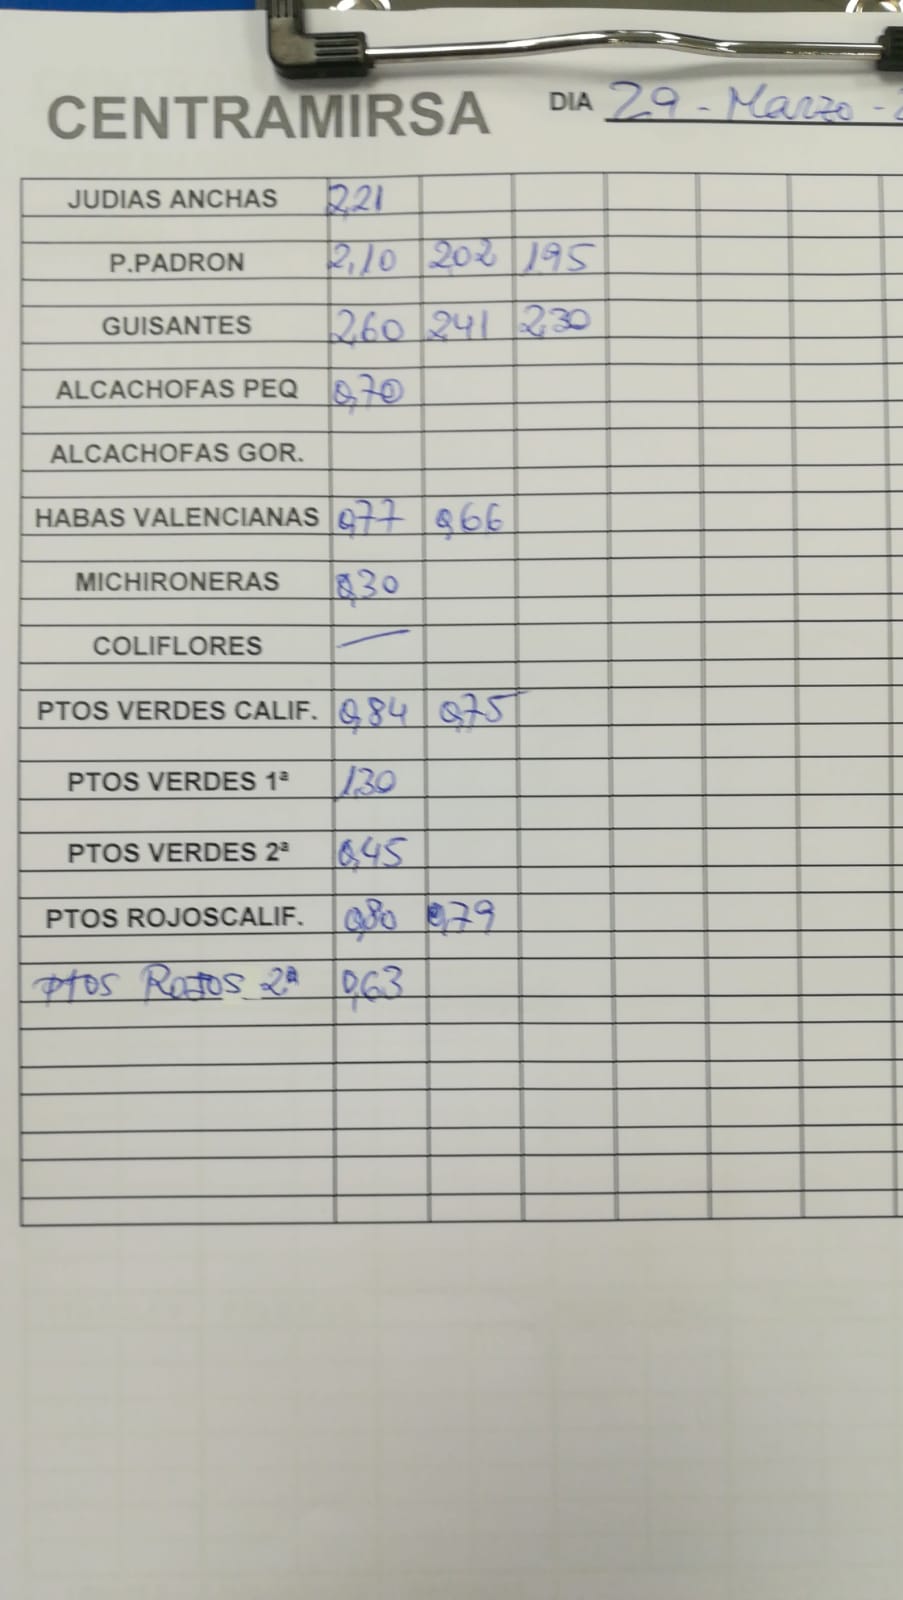 CENTRAMIRSA DIA 29 - Marzo -
JUDIAS ANCHAS 2,21
P.PADRON 2,10 2,02 1,95
GUISANTES 2,60 2,41 2,30
ALCACHOFAS PEQ 0,70
ALCACHOFAS GOR.
HABAS VALENCIANAS 0,77 0,66
MICHIRONERAS 0,30
COLIFLORES —
PTOS VERDES CALIF. 0,84 0,75
PTOS VERDES 1ª 1,30
PTOS VERDES 2ª 0,45
PTOS ROJOSCALIF. 0,80 0,79
Ptos Rojos 2ª 0,63